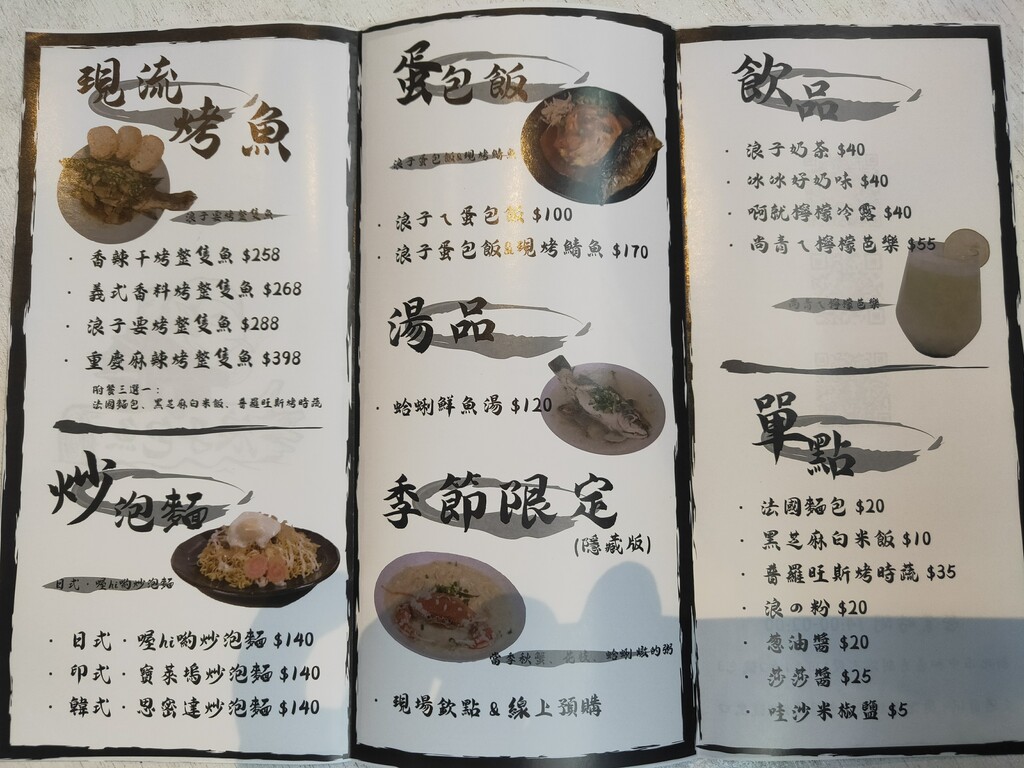 現流
烤魚
浪子雲烤整隻魚
· 香辣干烤整隻魚 $258
· 義式香料烤整隻魚 $268
· 浪子雲烤整隻魚 $288
· 重慶麻辣烤整隻魚 $398
附餐三選一：
法國麵包、黑芝麻白米飯、普羅旺斯烤時蔬
炒泡麵
日式·喔hi喲炒泡麵
· 日式·喔hi喲炒泡麵 $140
· 印式·寶萊塢炒泡麵 $140
· 韓式·思密達炒泡麵 $140
蛋包飯
浪子蛋包飯&現烤鯖魚
· 浪子ㄟ蛋包飯 $100
· 浪子蛋包飯&現烤鯖魚 $170
湯品
· 蛤蜊鮮魚湯 $120
季節限定
(隱藏版)
當季秋蟹、花枝、蛤蜊燉的粥
· 現場欽點 & 線上預購
飲品
· 浪子奶茶 $40
· 冰冰好奶味 $40
· 啊就檸檬冷露 $40
· 尚青ㄟ檸檬芭樂 $55
尚青ㄟ檸檬芭樂
單點
· 法國麵包 $20
· 黑芝麻白米飯 $10
· 普羅旺斯烤時蔬 $35
· 浪の粉 $20
· 蔥油醬 $20
· 莎莎醬 $25
· 哇沙米椒鹽 $5